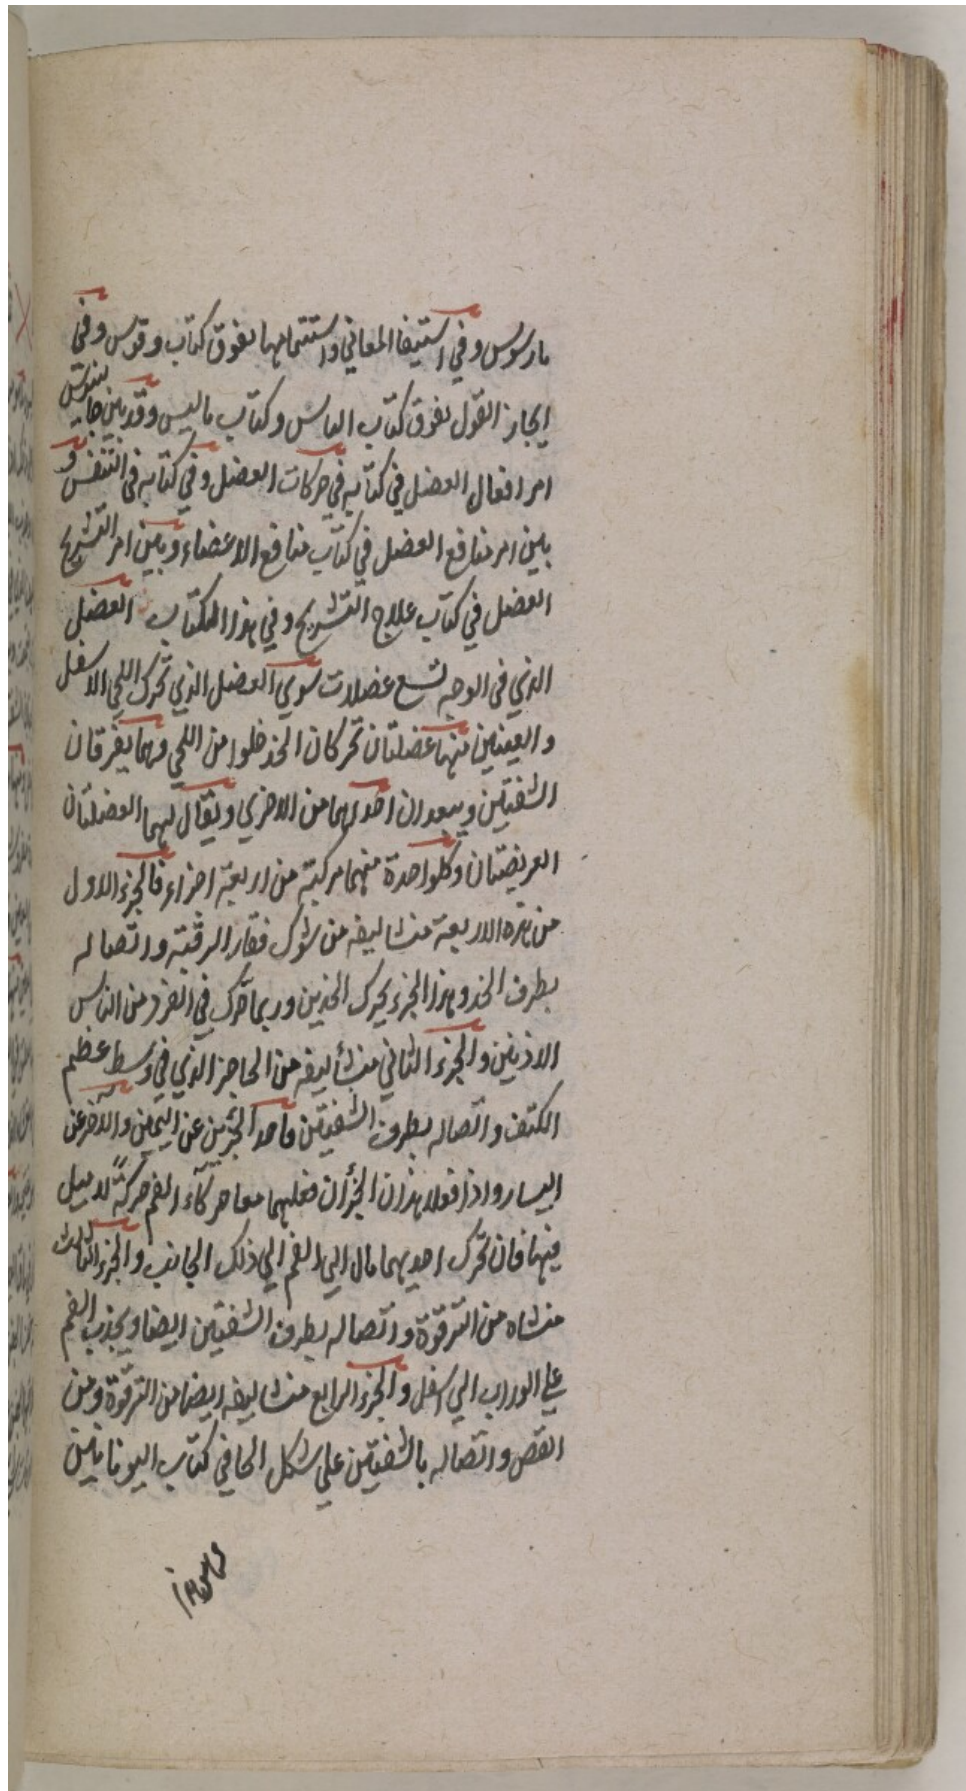 مارسوس وفي استيفا المعاني واستتمامها يفوق كتاب وقوس وفي
ايجاز القول يفوق كتاب الياس وكتاب ماليس وقد بين جالينوس
امر افعال العضل في كتابه في حركات العضل وفي كتابه في التنفس و
بين امر منافع العضل في كتاب منافع الاعضاء وبين امر التشريح
العضل في كتاب علاج التشريح وفي هذا الكتاب العضل
الذي في الوجه تسع عضلات سوي العضل الذي تحرك اللحي الاسفل
والعينين منها عضلتان تحركان الخد خلوا من اللحي وهما يفرقان
الشفتين ويبعدان احدلهما من الاخري ويقال لهما العضلتان
العريضتان وكلواحدة منهما مركبة من اربعة اجزاء فالجزء الاول
من هذه الاربعة منشا ليفه من شوك فقار الرقبة واتصاله
بطرف الخد وهذا الجزء يحرك الخدين وربما حرك في الفرد من الناس
الاذنين والجزء الثاني منشأ ليفه من الحاجز الذي في وسط عظم
الكتف واتصاله بطرف الشفتين واحد الجزئين عن اليمين والاخر عن
اليسار واذا فعلا هذان الجزآن فعلهما معا حركاء الفم حركةً لا ميل
فيها فان تحرك احديهما مال الي الفم الي ذلك الجانب والجزء الثالث
منشاه من الترقوة واتصاله بطرف الشفتين ايضا ويجذب الفم
علي الوراب الي اسفل والجزء الرابع منشا ليفه ايضا من الترقوة ومن
القص واتصاله بالشفتين علي شكل الحا في كتاب اليونانيين